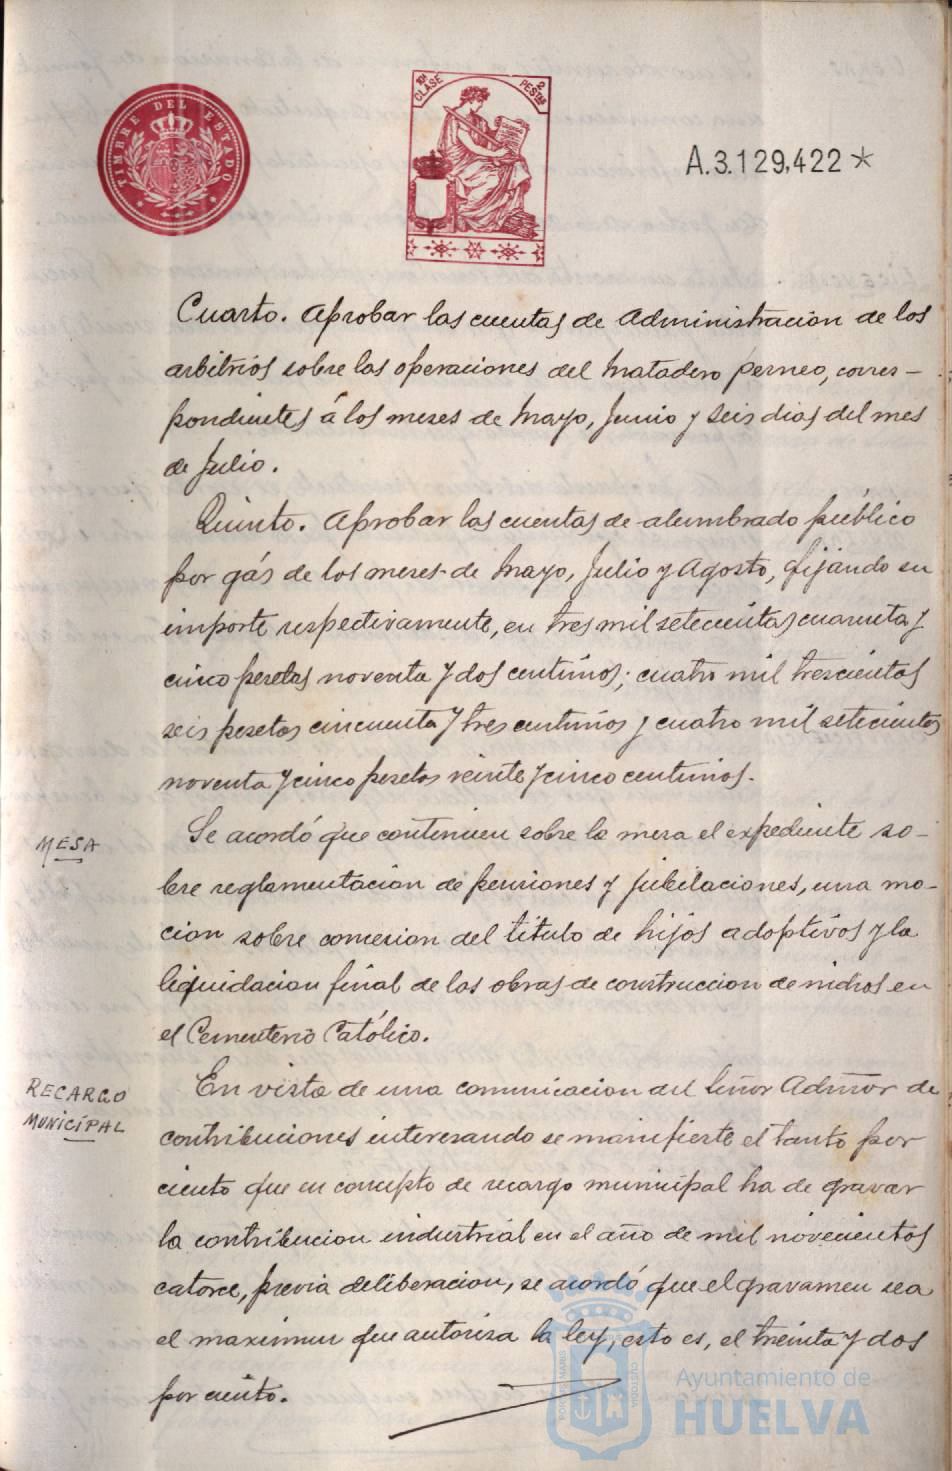 TIMBRE DEL ESTADO
10ª CLASE
2 PESTAS
A.3.129,422 *
Cuarto. Aprobar las cuentas de Administracion de los
arbitrios sobre las operaciones del Matadero perneo, corres-
pondientes á los meses de Mayo, Junio y seis dias del mes
de Julio.
Quinto. Aprobar las cuentas de alumbrado público
por gás de los meses de Mayo, Julio y Agosto, fijando su
importe respectivamente, en tres mil setecientas cuarenta y
cinco pesetas noventa y dos centimos; cuatro mil trescientas
seis pesetas cincuenta y tres centimos y cuatro mil setecientas
noventa y cinco pesetas veinte y cinco centimos.
MESA
Se acordó que continuen sobre la mesa el expediente so-
bre reglamentacion de pensiones y jubilaciones, una mo-
cion sobre concesion del titulo de hijos adoptivos y la
liquidacion final de las obras de construccion de nichos en
el Cementerio Católico.
RECARGO
MUNICIPAL
En vista de una comunicacion del Señor Admor de
contribuciones interesando se manifieste el tanto por
ciento que en concepto de recargo municipal ha de gravar
la contribucion industrial en el año de mil novecientos
catorce, previa deliberacion, se acordó que el gravamen sea
el maximun que autoriza la ley, esto es, el treinta y dos
por ciento.
PORTUS MARIS
CUSTODIA
Ayuntamiento de
HUELVA